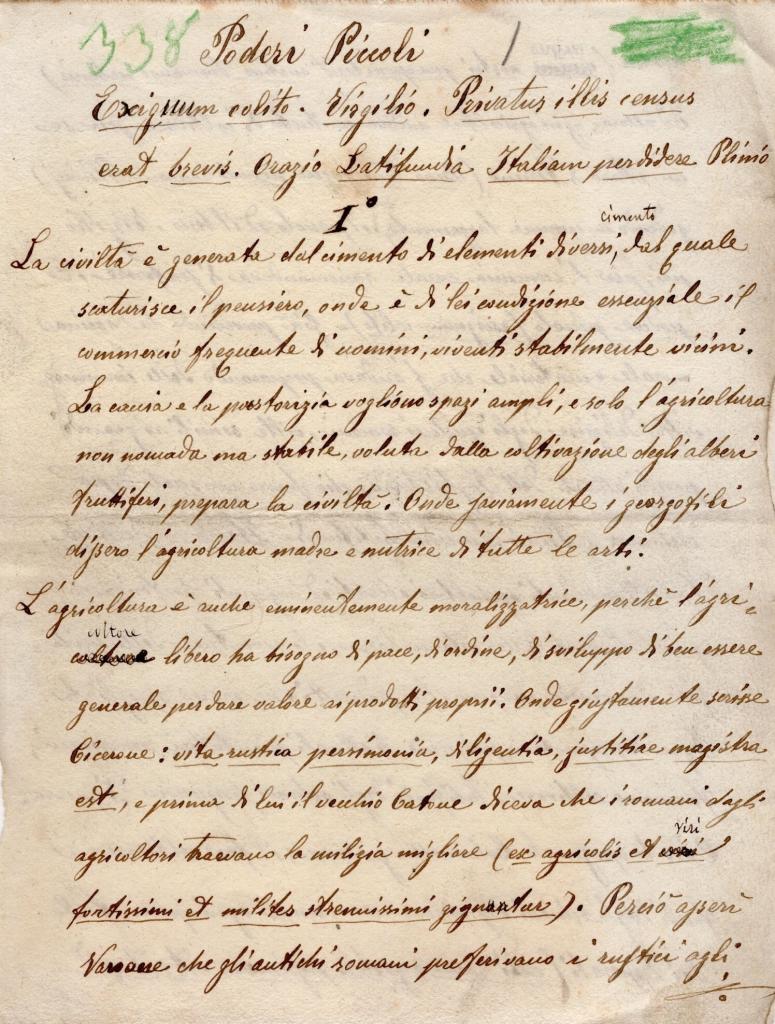 338 Poderi Piccoli 1
Exiguum colito. Virgilio. Privatus illis census
erat brevis. Orazio Latifundia Italiam perdidere Plinio
I°
cimento
La civiltà è generata dal cimento di elementi diversi, dal quale
scaturisce il pensiero, onde è di lei condizione essenziale il
commercio frequente di uomini, viventi stabilmente vicini.
La caccia e la pastorizia vogliono spazi ampli, e solo l'agricoltura
non nomada ma stabile, voluta dalla coltivazione degli alberi
fruttiferi, prepara la civiltà. Onde saviamente i georgofili
dissero l'agricoltura madre e nutrice di tutte le arti.
L'agricoltura è anche eminentemente moralizzatrice, perchè l'agri=
coltore
libero ha bisogno di pace, di ordine, di sviluppo di ben essere
generale per dare valore ai prodotti proprii. Onde giustamente scrisse
Cicerone: vita rustica persimonia, diligentia, justitiae magistra
est, e prima di lui il vecchio Catone diceva che i romani dagli
viri
agricoltori traevano la milizia migliore (ex agricolis et
fortissimi et milites strenuissimi gignuntur). Perciò asserì
Varrone che gli antichi romani preferivano i rustici agli